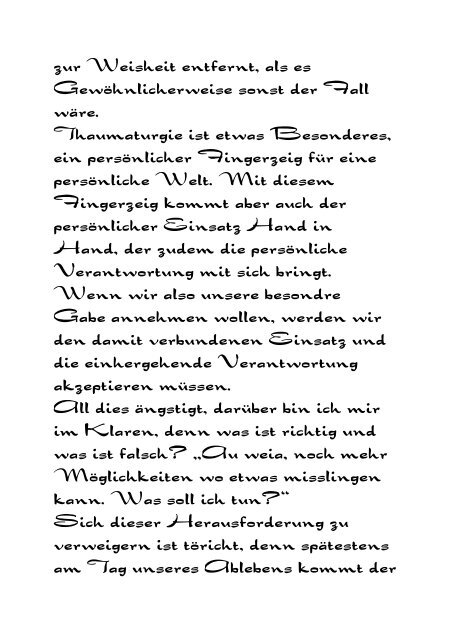 zur Weisheit entfernt, als es
Gewöhnlicherweise sonst der Fall
wäre.
Thaumaturgie ist etwas Besonderes,
ein persönlicher Fingerzeig für eine
persönliche Welt. Mit diesem
Fingerzeig kommt aber auch der
persönlicher Einsatz Hand in
Hand, der zudem die persönliche
Verantwortung mit sich bringt.
Wenn wir also unsere besondre
Gabe annehmen wollen, werden wir
den damit verbundenen Einsatz und
die einhergehende Verantwortung
akzeptieren müssen.
All dies ängstigt, darüber bin ich mir
im Klaren, denn was ist richtig und
was ist falsch? „Au weia, noch mehr
Möglichkeiten wo etwas misslingen
kann. Was soll ich tun?“
Sich dieser Herausforderung zu
verweigern ist töricht, denn spätestens
am Tag unseres Ablebens kommt der